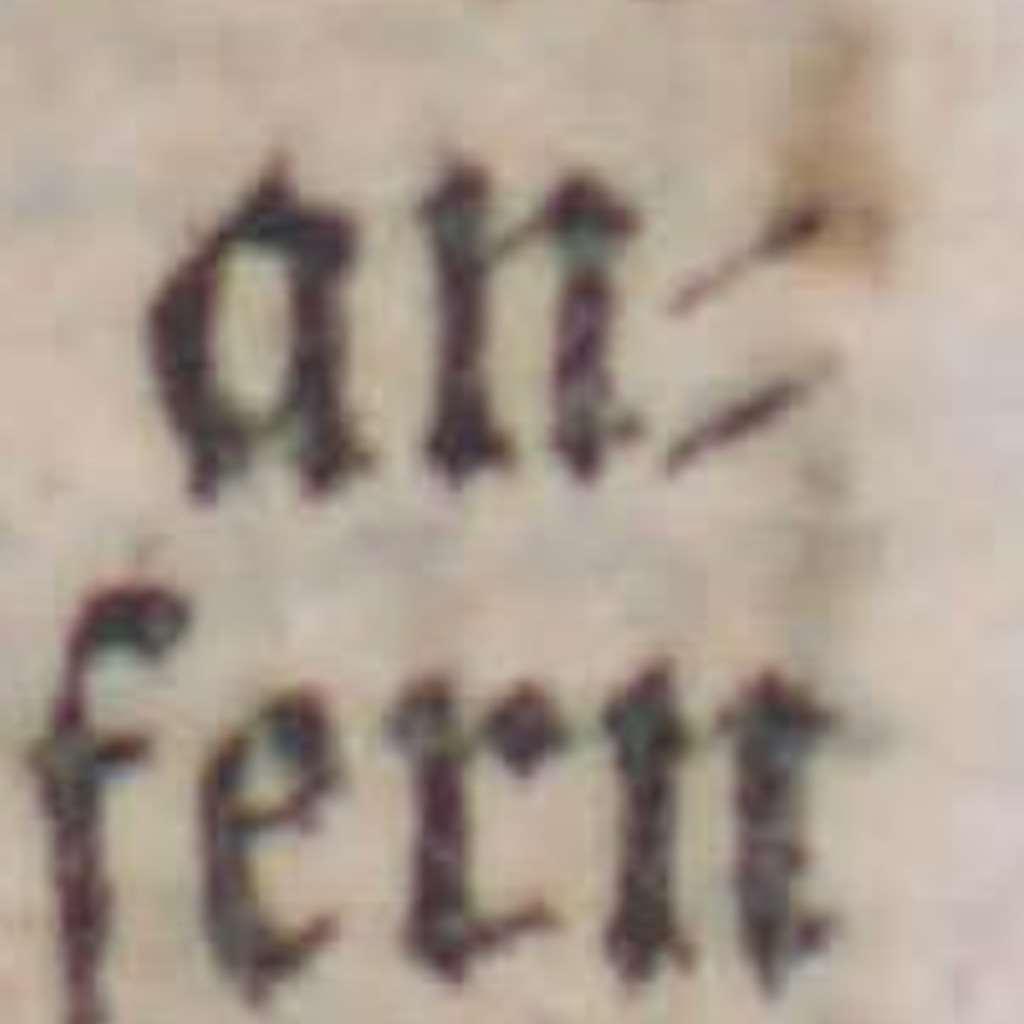 an=
fern